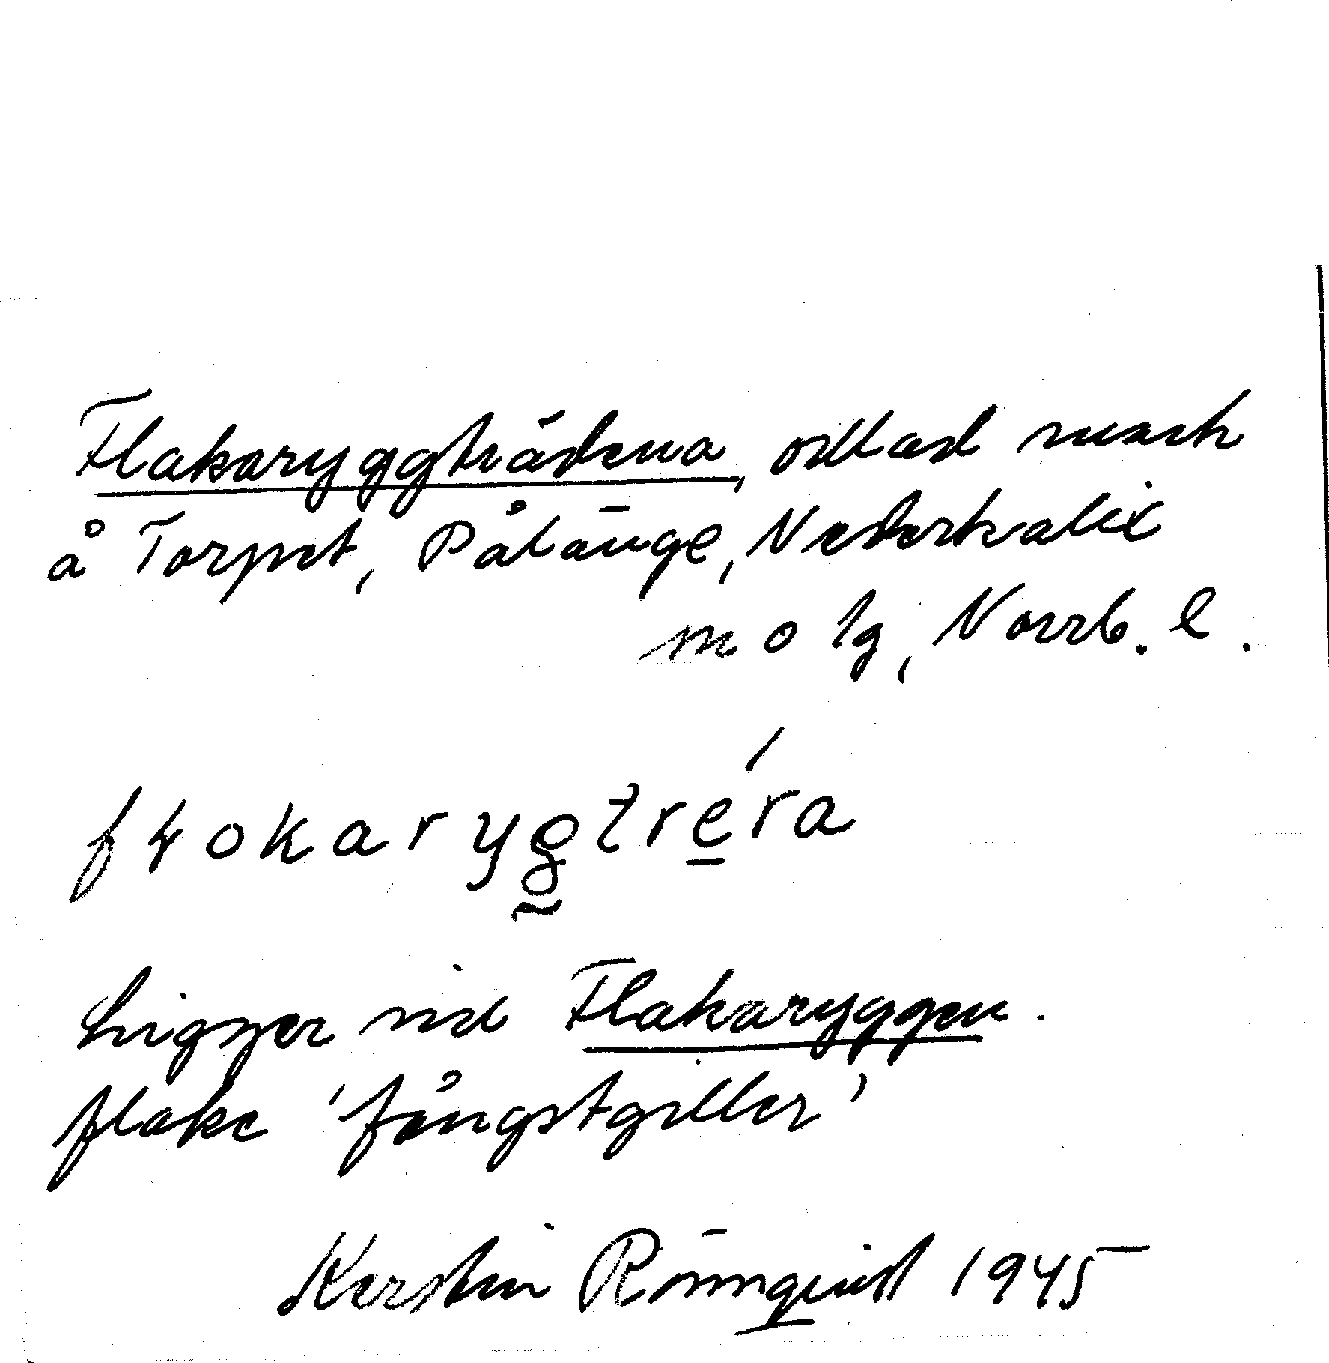 Flakaryggträdena, odlad mark
å Torpet, Pålänge, Nederkalix
m o lg, Norrb. l.
Ligger vid Flakaryggen.
flake 'fångstgiller'
Kerstin Rönnqvist 1945